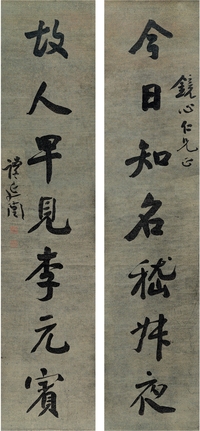 今日知名嵇叔夜
鏡心仁兄正
故人早見李元賓
譚延闓